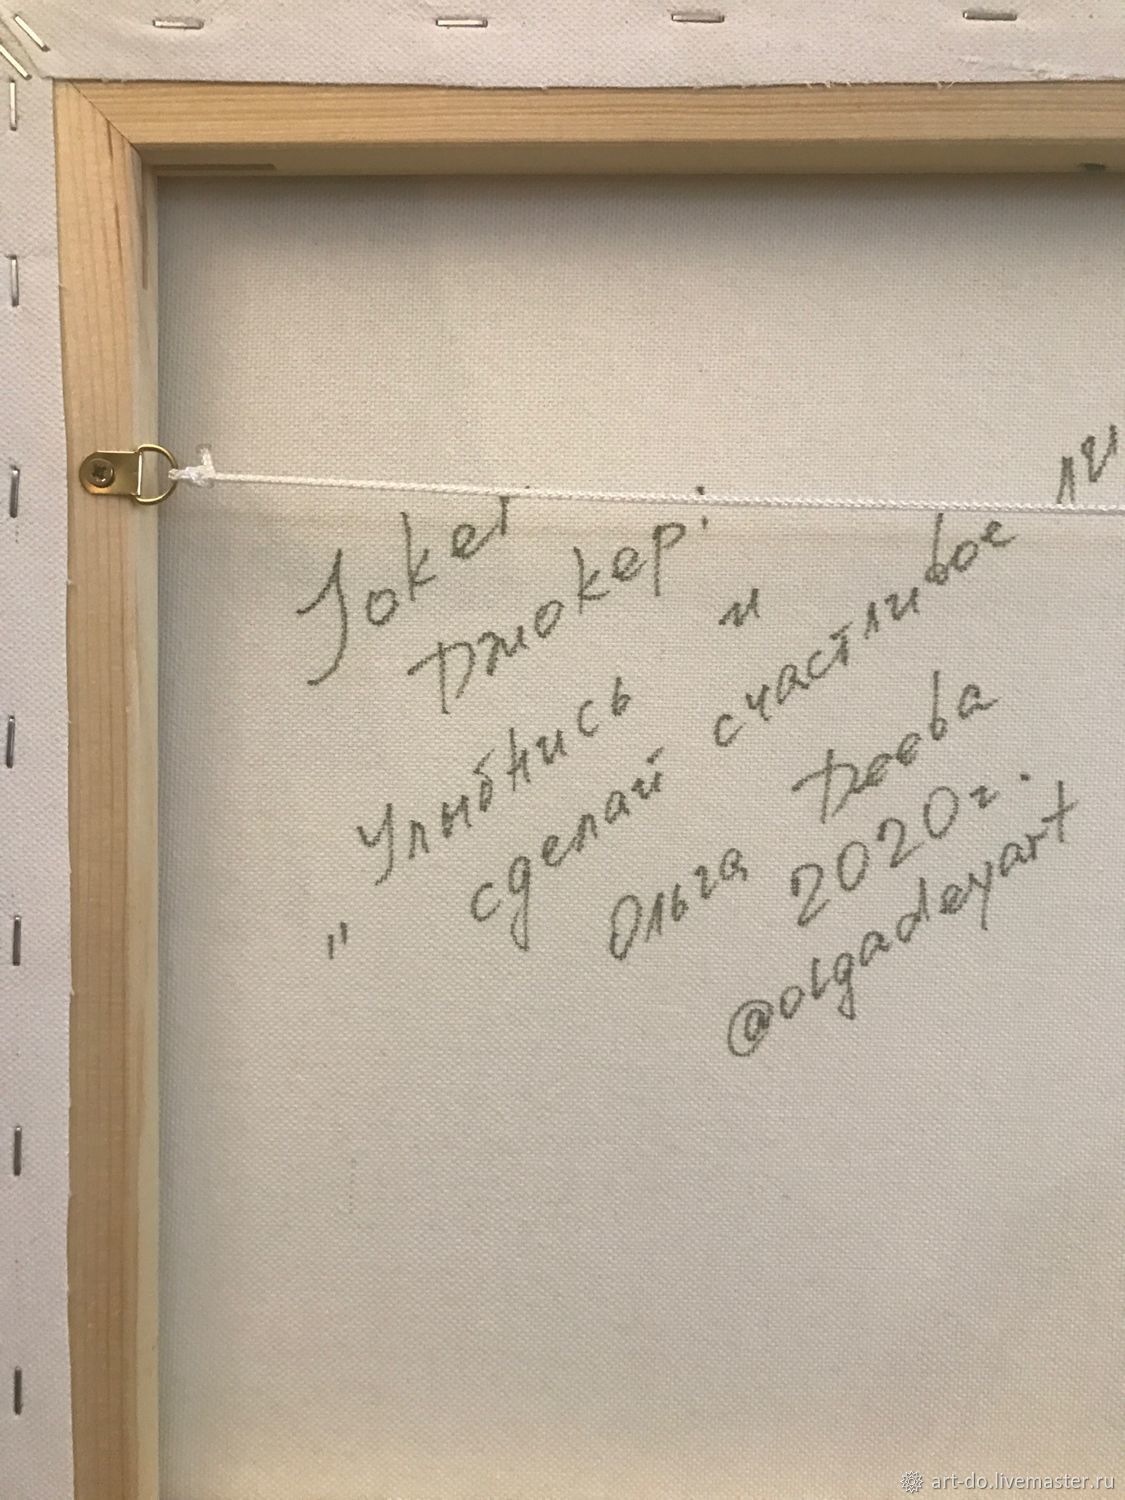 Joker
Джокер:
" Улыбнись и
сделай счастливое
Ольга Деева
2020г.
@olgadeyart
art-do.livemaster.ru